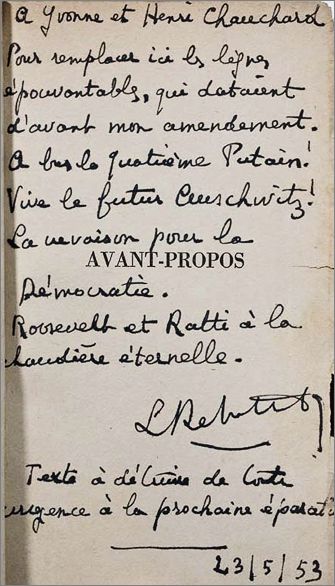 A Yvonne et Henri Chauchard
Pour remplacer ici les lignes
épouvantables, qui dataient
d'avant mon amendement.
A bas la quatrième Putain!
Vive le futur Auschwitz!
La crevaison pour la
AVANT-PROPOS
Démocratie.
Roosevelt et Ratti à la
chaudière éternelle.
L Rebatet
Texte à détruire de toute
urgence à la prochaine
23/5/53